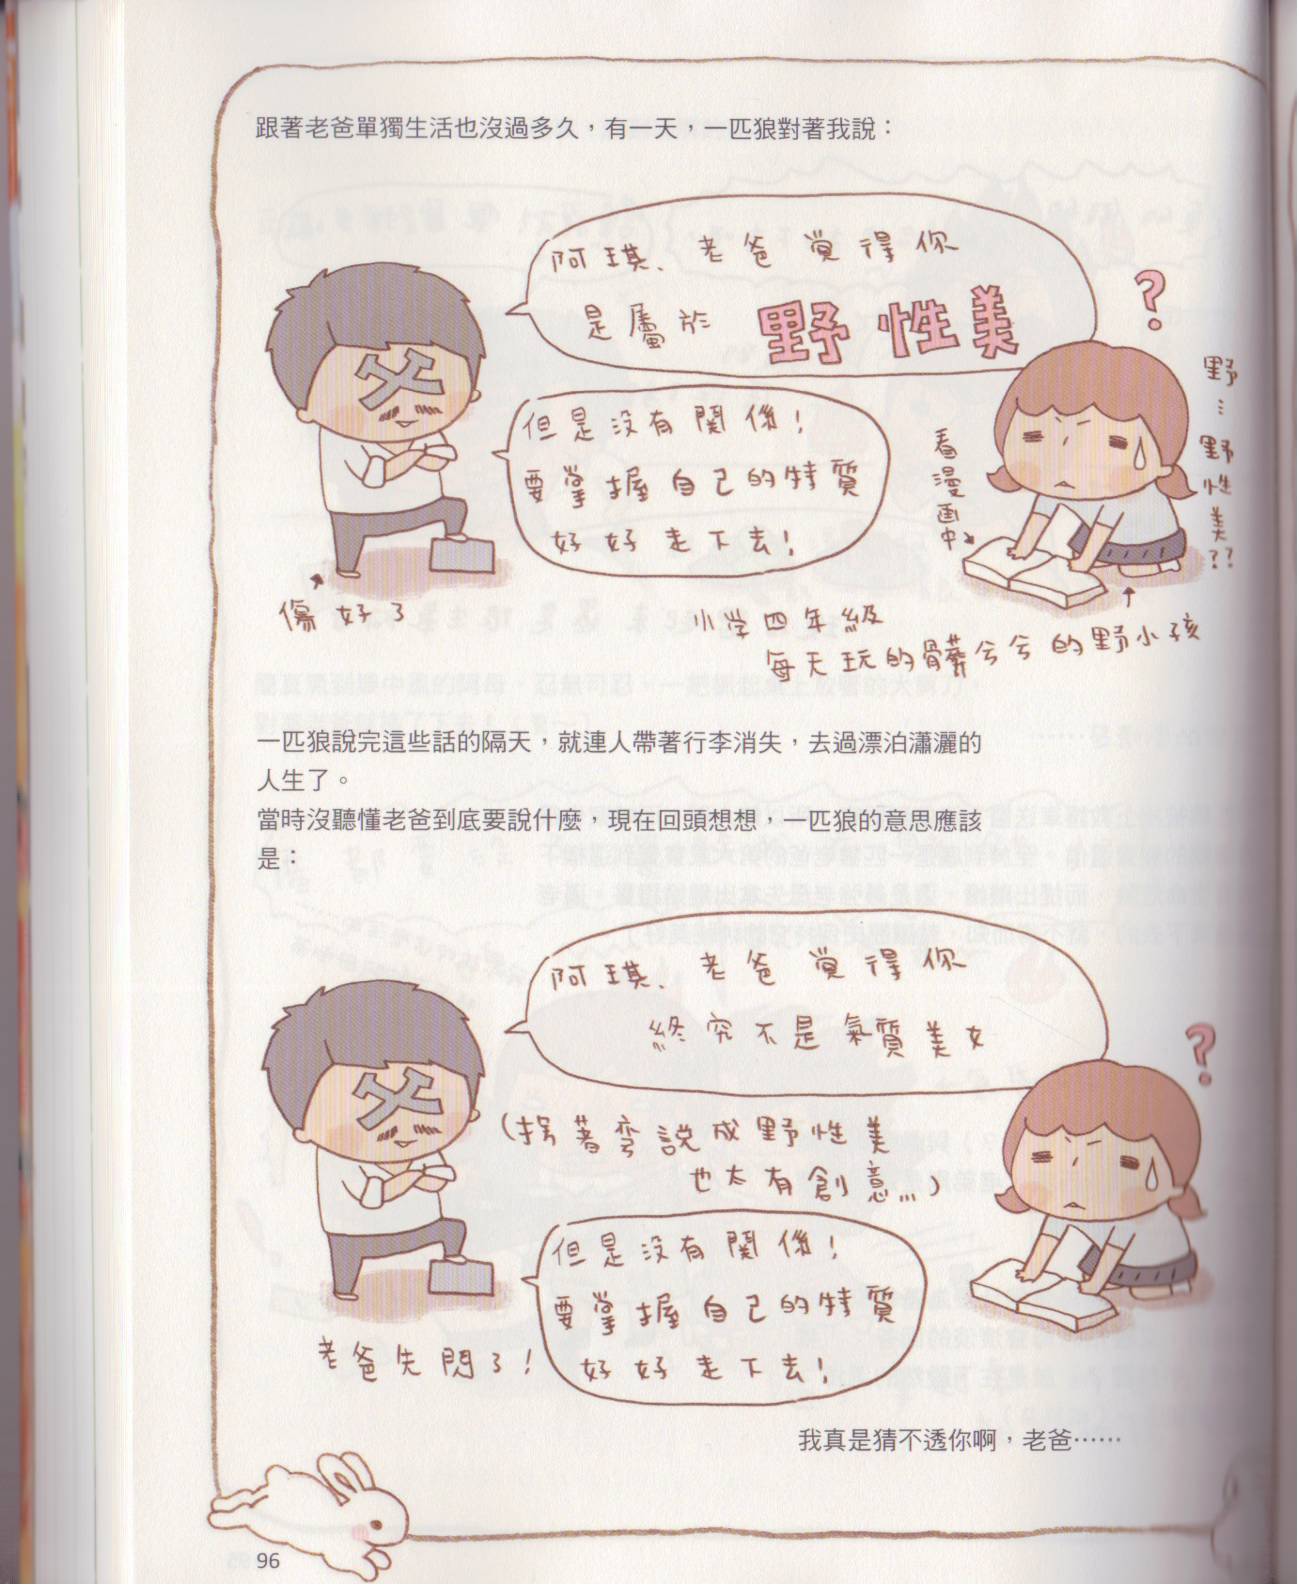 跟著老爸單獨生活也沒過多久，有一天，一匹狼對著我說：
阿琪、老爸覺得你
是屬於 野性美
?
父
但是没有關係！
要掌握自己的特質
好好走下去！
看漫画中
野…野性美??
傷好了
小学四年級
每天玩的髒兮兮的野小孩
一匹狼說完這些話的隔天，就連人帶著行李消失，去過漂泊瀟灑的
人生了。
當時沒聽懂老爸到底要說什麼，現在回頭想想，一匹狼的意思應該
是：
阿琪、老爸覺得你
終究不是氣質美女
?
父
(拐著彎說成野性美
也太有創意…)
但是没有關係！
要掌握自己的特質
好好走下去！
老爸先閃了！
我真是猜不透你啊，老爸……
96